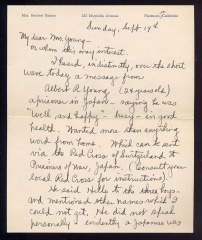 Mrs. Herbert Hames 221 Magnolia Avenue Piedmont, California
Sunday, Sept 19th
My dear Mrs. Young -
or whom this may interest.
I heard, indistinctly, over the short
wave today a message from
Albert R Young (24 years old)
a prisoner in Japan - saying he was
"Well, and happy" - busy - in good
health. Wanted more than anything
word from home. Which can be sent
via the Red Cross of Switzerland to
Prisoner of War, Japan. (Consult your
local Red Cross for instructions).
He said Hello to the three boys -
and mentioned other names which I
could not get. He did not speak
personally evidently a Japanese was